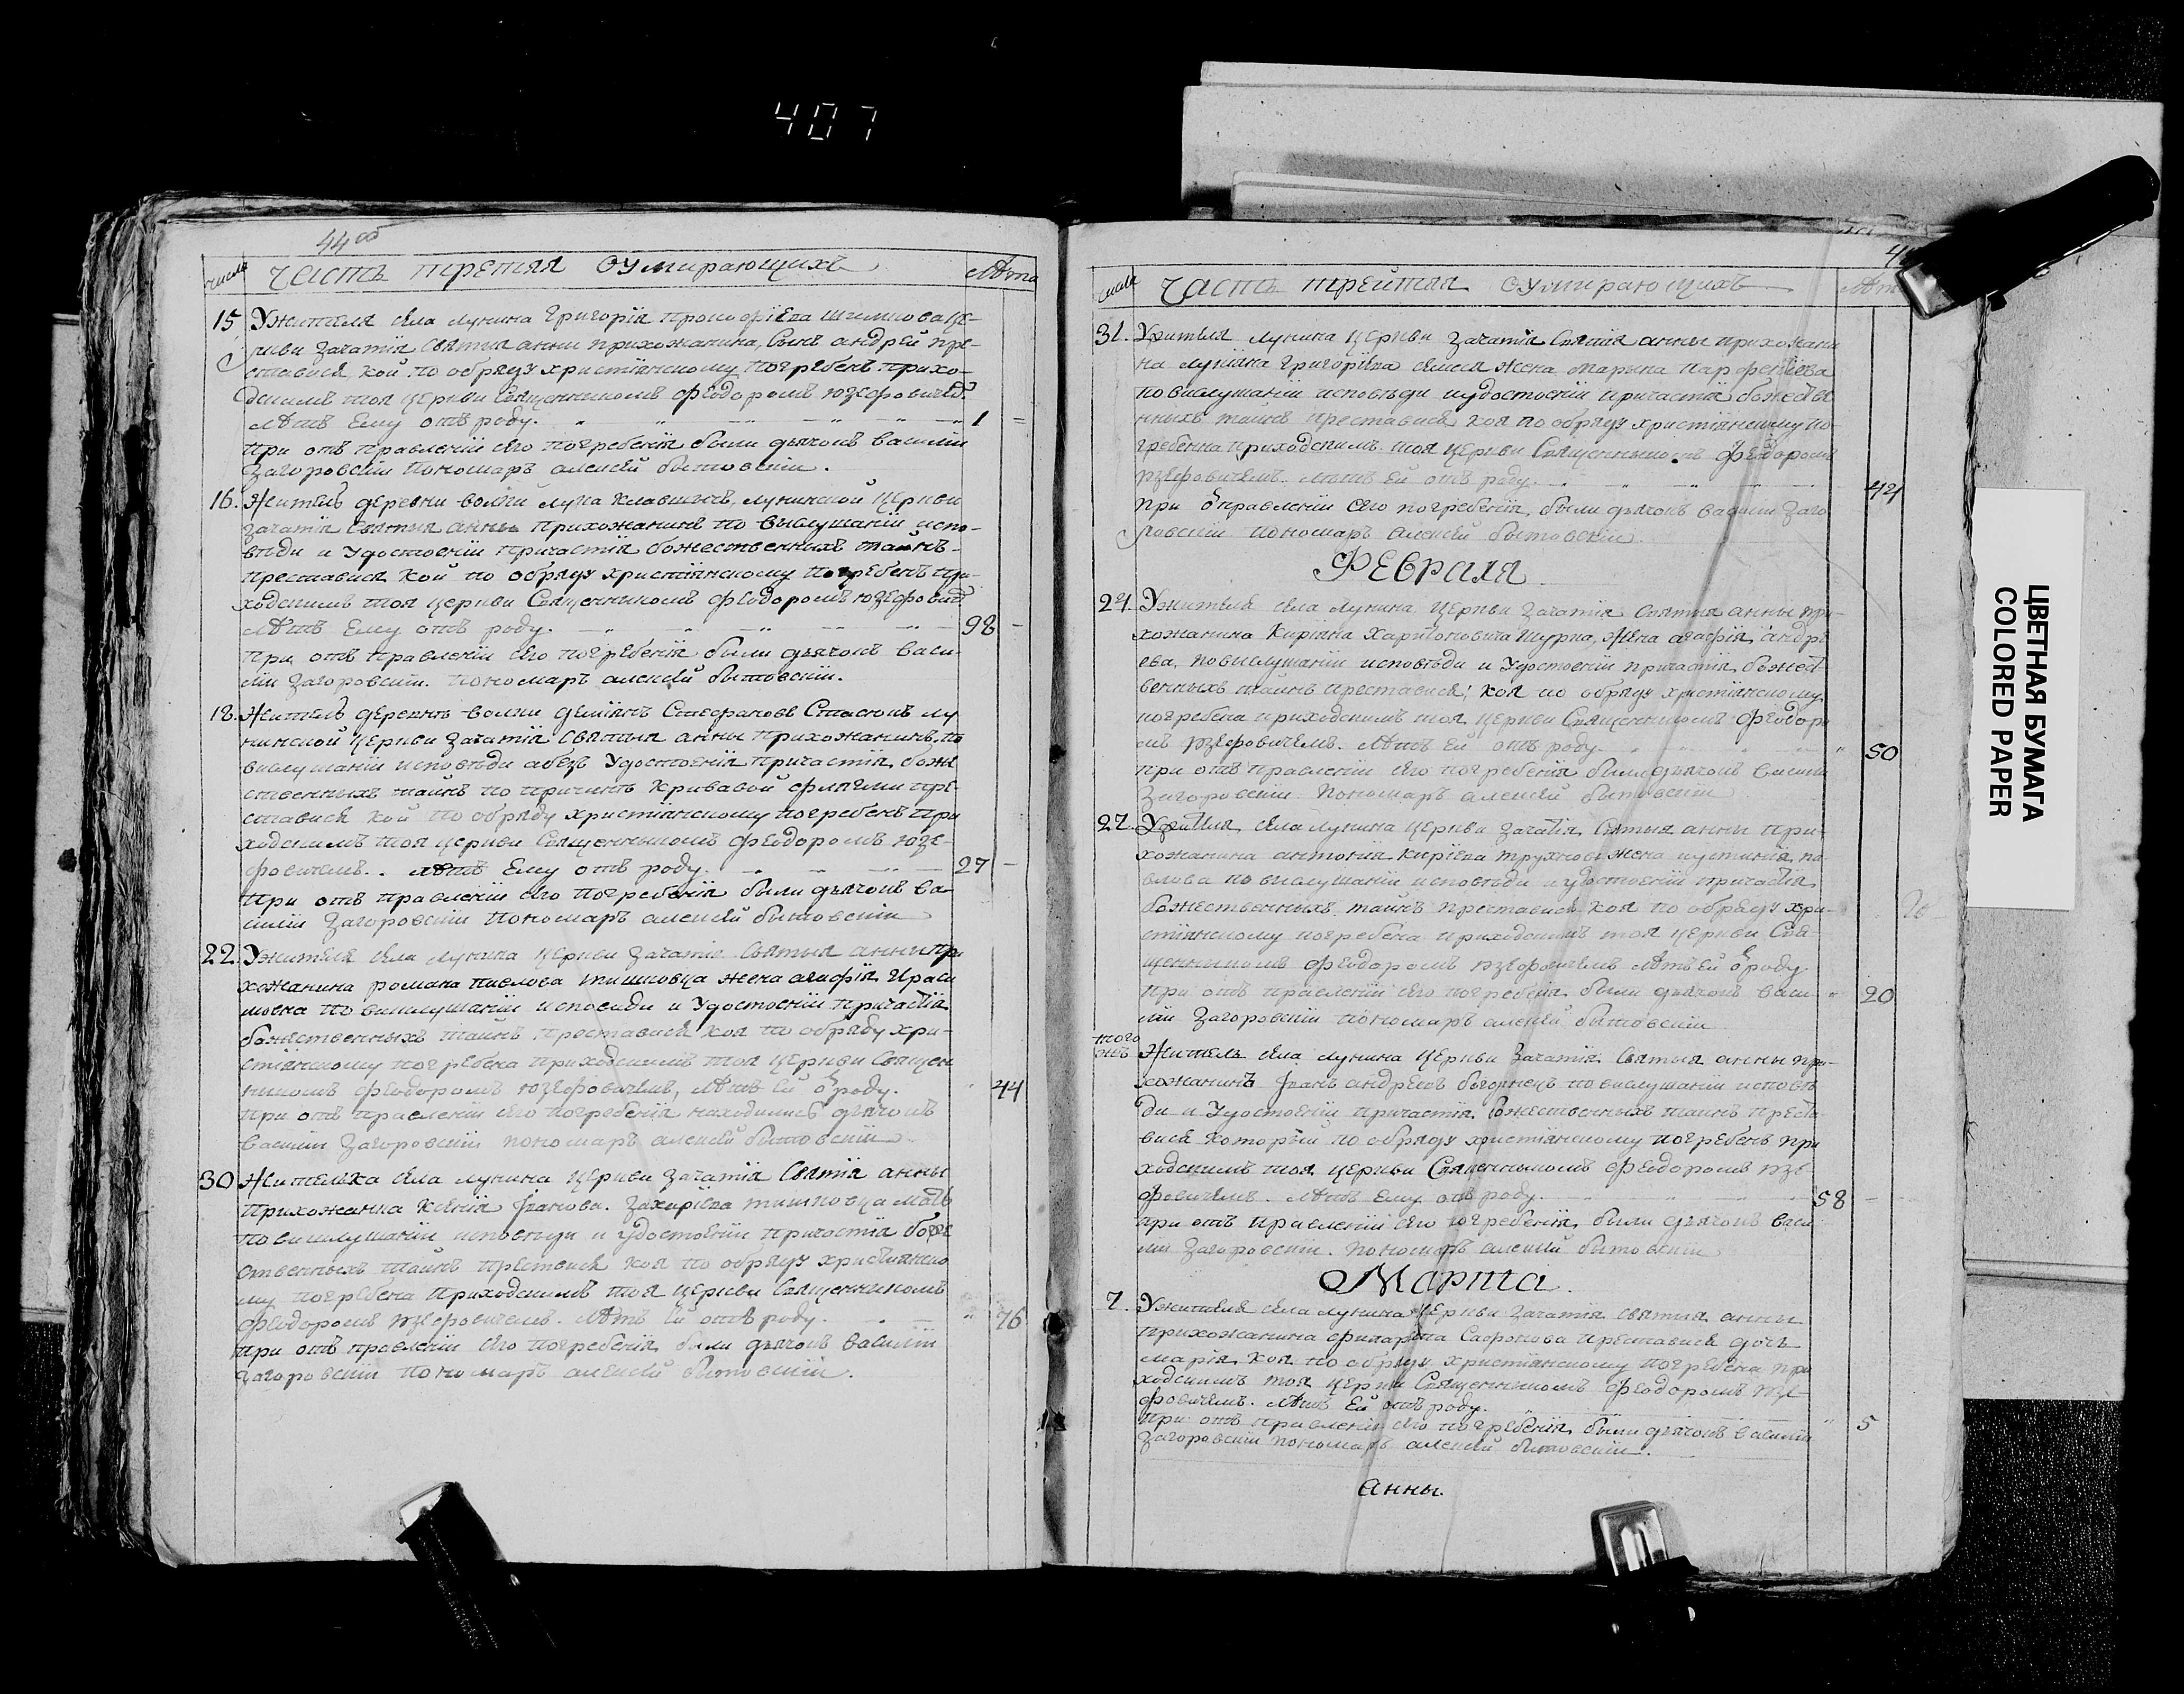 407
44 об
числа Часть третяя о умирающихъ Лѣта
15 Ужителя села лунина Григорія прокофіева це-
ркви зачатія святыя анны прихожанина, сынъ андрей пре-
ставися кой по обряду христіянскому погребенъ прихо-
дскимъ тоя церкви священникомъ феодоромъ юзефовичемъ
лѣтъ Ему отъ роду. 1
при отъ правленіи его погребенія были дьячокъ василій
Загоровскій пономаръ алексѣй битовскій.
16. Житель деревни волки лука лунинской церкви
зачатія святыя анны прихожанинъ по вислушаніи испо-
вѣди и удостоеніи причастія божественныхъ таинъ
преставися кой по обряду христіянскому погребенъ при-
ходскимъ тоя церкви священникомъ феодоромъ юзефовичемъ
Лѣтъ Ему отъ роду. 98
при отъ правленіи его погребенія были дьячокъ васи-
лій Загоровскій. пономаръ алексѣй битовскій.
18. Житель деревнѣ волки деміянъ Стефановъ Стасюкъ лу
нинской церкви зачатія святыя анны прихожанинъ, по
вислушаніи исповѣди абезъ удостоенія причастія боже
ственныхъ таинъ по причинѣ кривавой пре-
ставися кой по обряду христіянскому погребенъ при
ходскимъ тоя церкви священникомъ феодоромъ юзе-
фовичемъ.. лѣтъ Ему отъ роду. 27
при отъ правленіи его погребенія были дьячокъ ва-
силій Загоровскій пономаръ алексѣй битовскій
22. Ужителя села лунина церкви зачатія святыя анны при
хожанина романа павлова тишковца жена агафія Гераси
мовна по вислушаніи исповеди и удостоеніи причастія
божественныхъ таинъ преставися коя по обряду хри-
стіянскому погребена приходскимъ тоя церкви священ
никомъ феодоромъ юзефовичемъ, лѣтъ Ей о роду. 44
при отъ правленіи его погребенія находились дьячокъ
василій Загоровскій пономаръ алексѣй битовскій
30 Жителька села лунина церкви зачатія святія анны
прихожанка Ксенія Іванова. Захаріева тишковца мать
по вислушаніи исповѣди и удостоеніи причастія боже
ственныхъ таинъ преставися коя по обряду христіянско
му погребена приходскимъ тоя церкви священникомъ
феодоромъ юзефовичемъ. Лѣтъ Ей отъ роду. 76
при отъ правленіи его погребенія были дьячокъ василій
Загоровскій пономаръ алексѣй битовскій.
числа Часть трейтяя о умирающихъ
31. Ужителя лунина церкви зачатія святія анны прихожани
на лукіяна григоріева жена марына парфеніева
по вислушаніи исповѣди иудостоеніи причастія божестве
нныхъ таинъ преставися коя по обряду христіянскому по-
гребенна приходскимъ тоя церкви священникомъ феодоромъ
юзефовичемъ. лѣтъ Ей отъ роду. 42
при оправленіи его погребенія, были дьячокъ василій Заго
ровскій пономаръ алексѣй битовскій
Февраля
24. Ужителя села лунина церкви зачатія святыя анны при-
хожанина Киріяна Харитоновича Шурпа, жена агафія андре
ева, повислушаніи исповѣди и удостоеніи причастія божест
венныхъ таинъ преставися, коя по обряду христіянскому
погребена приходскимъ тоя церкви священникомъ феодоро
мъ юзефовичемъ. Лѣтъ Ей отъ роду. 50
при отъ правленіи его погребенія были дьячокъ василій
Загоровскій пономаръ алексѣй битовскій
27. Ужителя села лунина церкви зачатія святыя анны при-
хожанина антонія киріева жена иустинія, па
влова по вислушаніи исповѣди иудостоеніи причастія
божественныхъ таинъ преставися коя по обряду хри-
стіянскому погребена приходскимъ тоя церкви свя-
щенникомъ феодоромъ юзефовичемъ лѣтъ Ей о роду.
при отъ правленіи его погребенія были дьячокъ васи 20
лій Загоровскій пономаръ алексѣй битовскій
того
жъ Житель села лунина церкви зачатія святыя анны при-
хожанинъ Іванъ андреевъ по вислушаніи исповѣ
ди и удостоеніи причастія божественныхъ таинъ преста
вися который по обряду христіянскому погребенъ при
ходскимъ тоя церкви священникомъ феодоромъ юзе
фовичемъ. лѣтъ Ему отъ роду. 58
при отъ правленіи его погребенія, были дьячокъ васи
лій Загоровскій. пономаръ алексѣй битовскій
Марта.
7. Ужителя села лунина церкви зачатія святыя анны
прихожанина Сафонова преставися дочь
марія коя по обряду христіянскому погребена при
ходскимъ тоя церкви священникомъ феодоромъ юзе-
фовичемъ. лѣтъ Ей отъ роду.
при отъ правленіи его погребенія, были дьячокъ василій 5
Загоровскій пономаръ алексѣй битовскій.
анны.
ЦВЕТНАЯ БУМАГА
COLORED PAPER